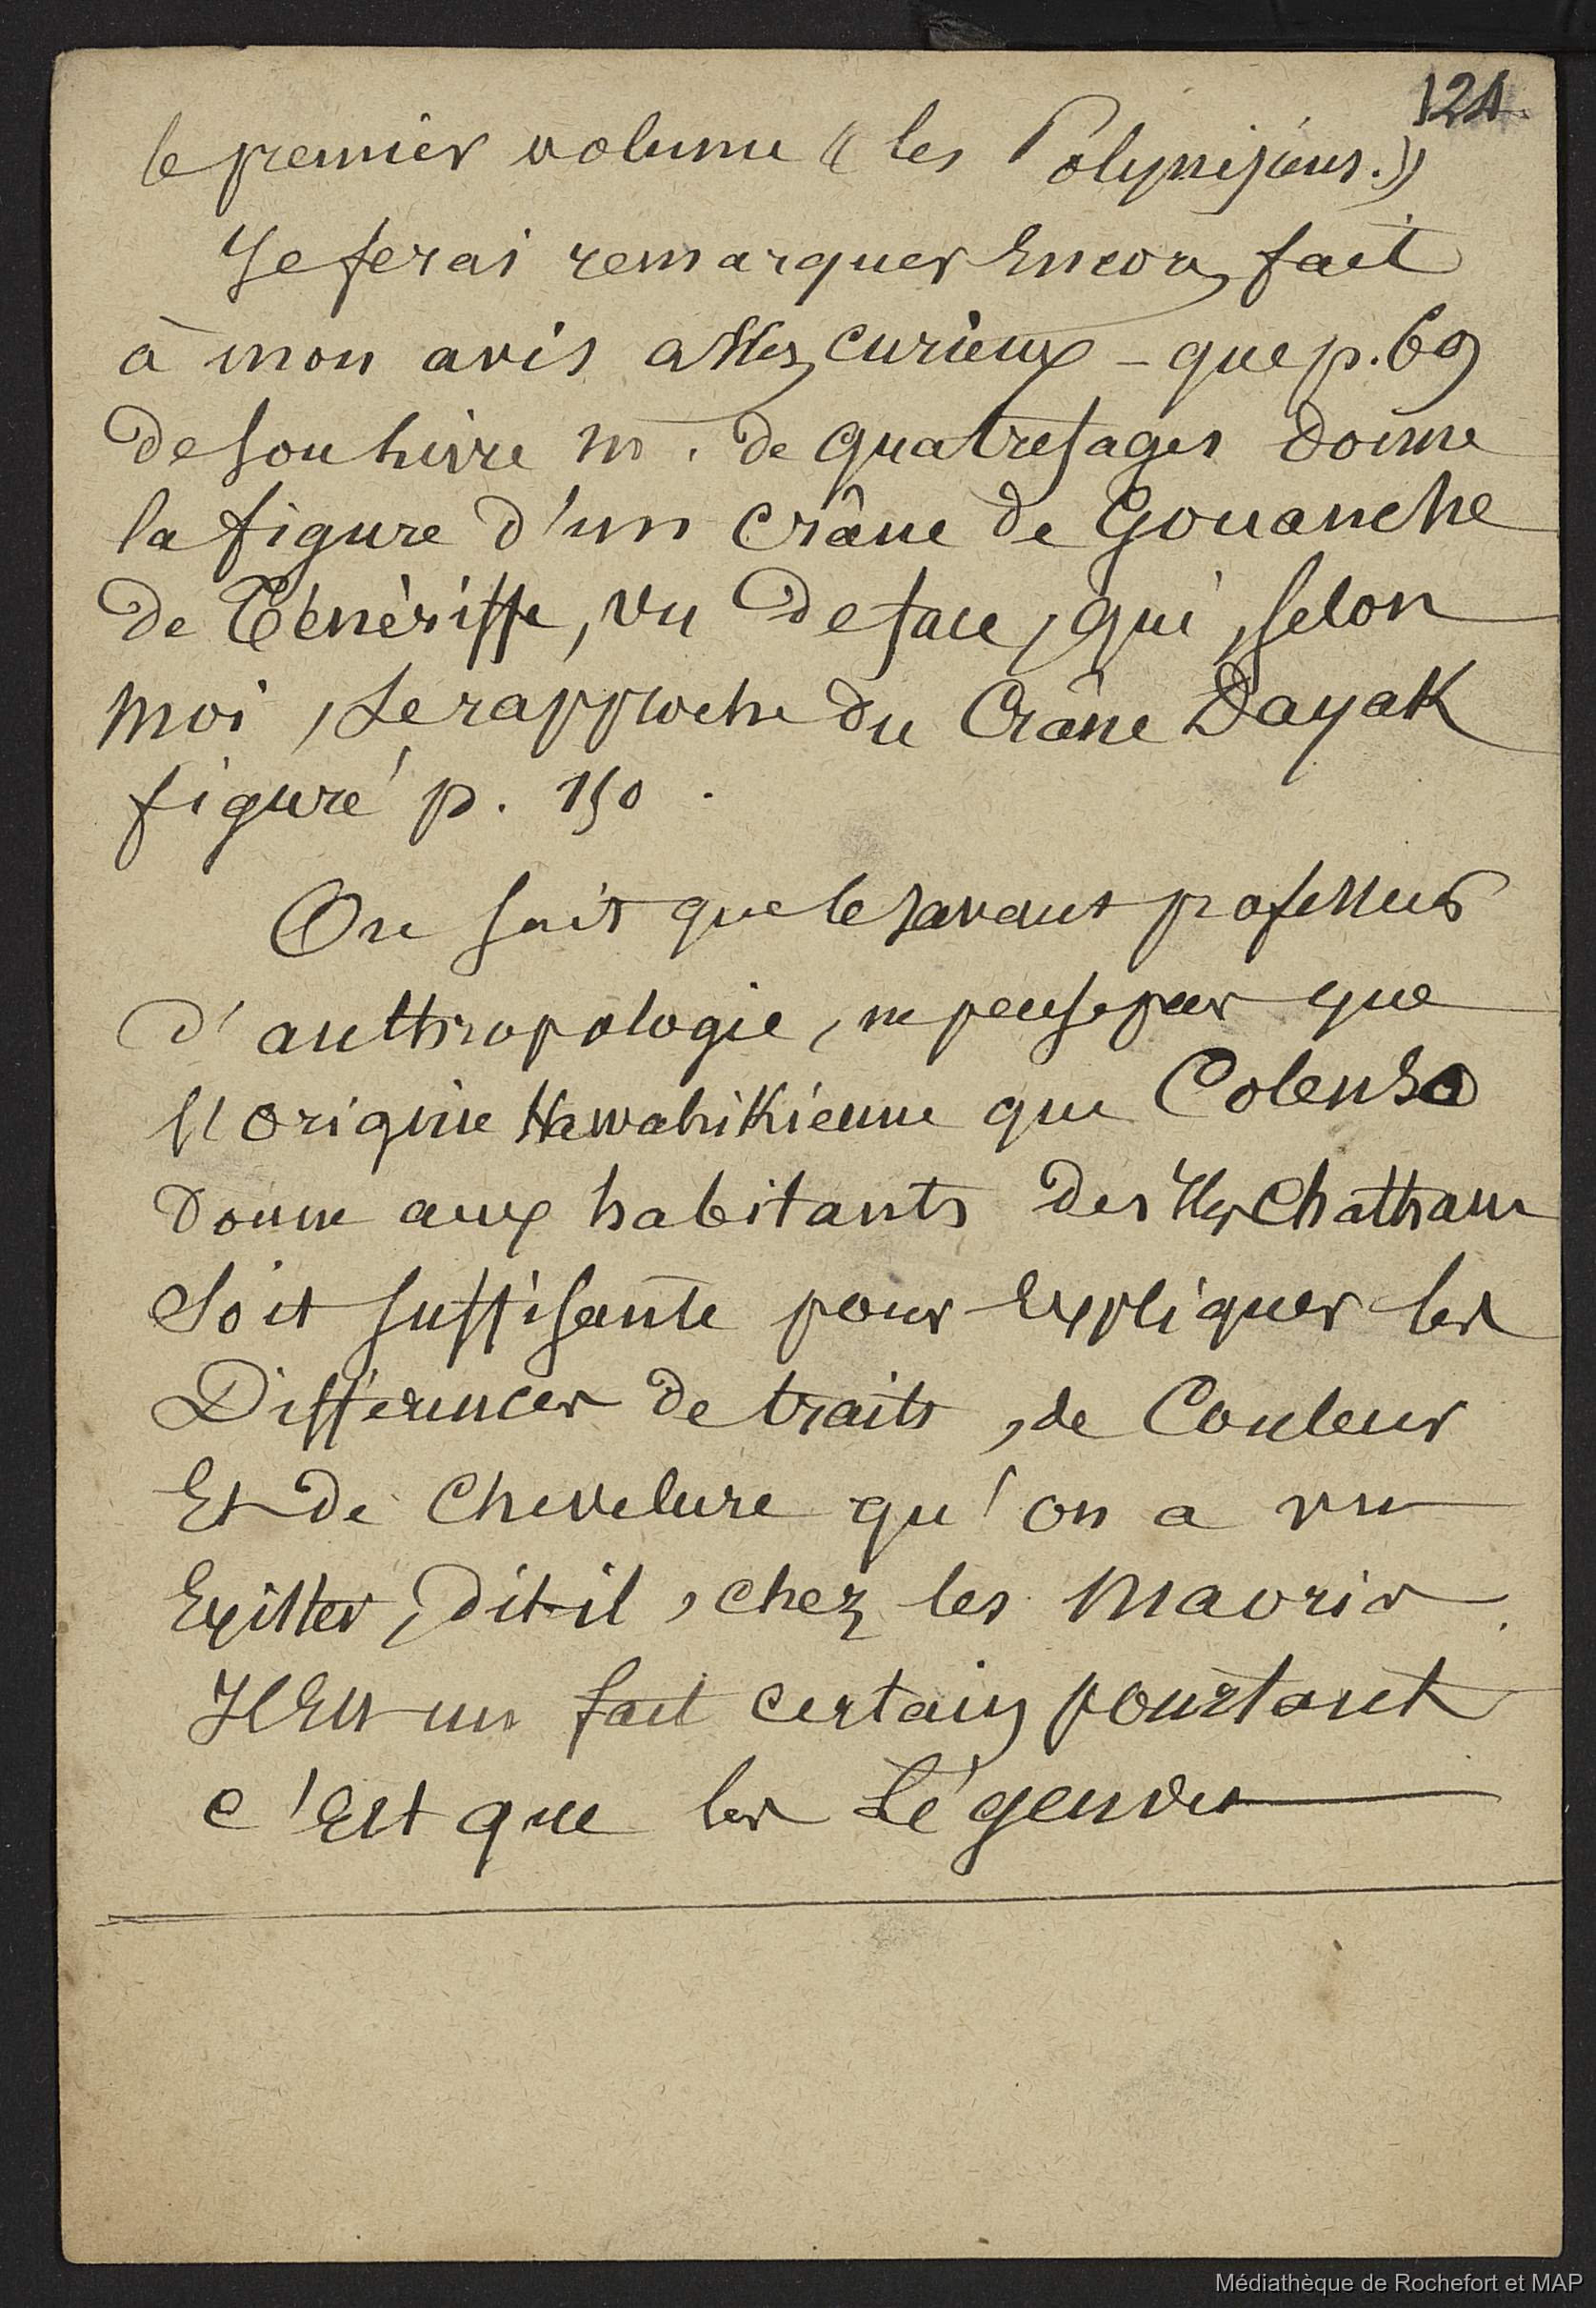 124
le premier volume « les Polynésiens. »
Je ferai remarquer Encore, fait
à mon avis assez curieux - que p. 69
de son livre M. de Quatrefages donne
la figure d'un crâne de Gouanche
de Ténériffe, vu de face, qui, selon
moi, se rapproche du Crâne Dayak
figuré p. 150.
On sait que le savant professeur
d'anthropologie, ne pense pas que
l'origine Hawahikienne que Colenso
donne aux habitants des Iles Chatham
soit suffisante pour Expliquer les
Différences de traits, de Couleur
Et de Chevelure qu'on a vu
Exister, dit-il, chez les Maoris.
Il Est un fait certain pourtant
c'Est que les Légendes
Médiathèque de Rochefort et MAP